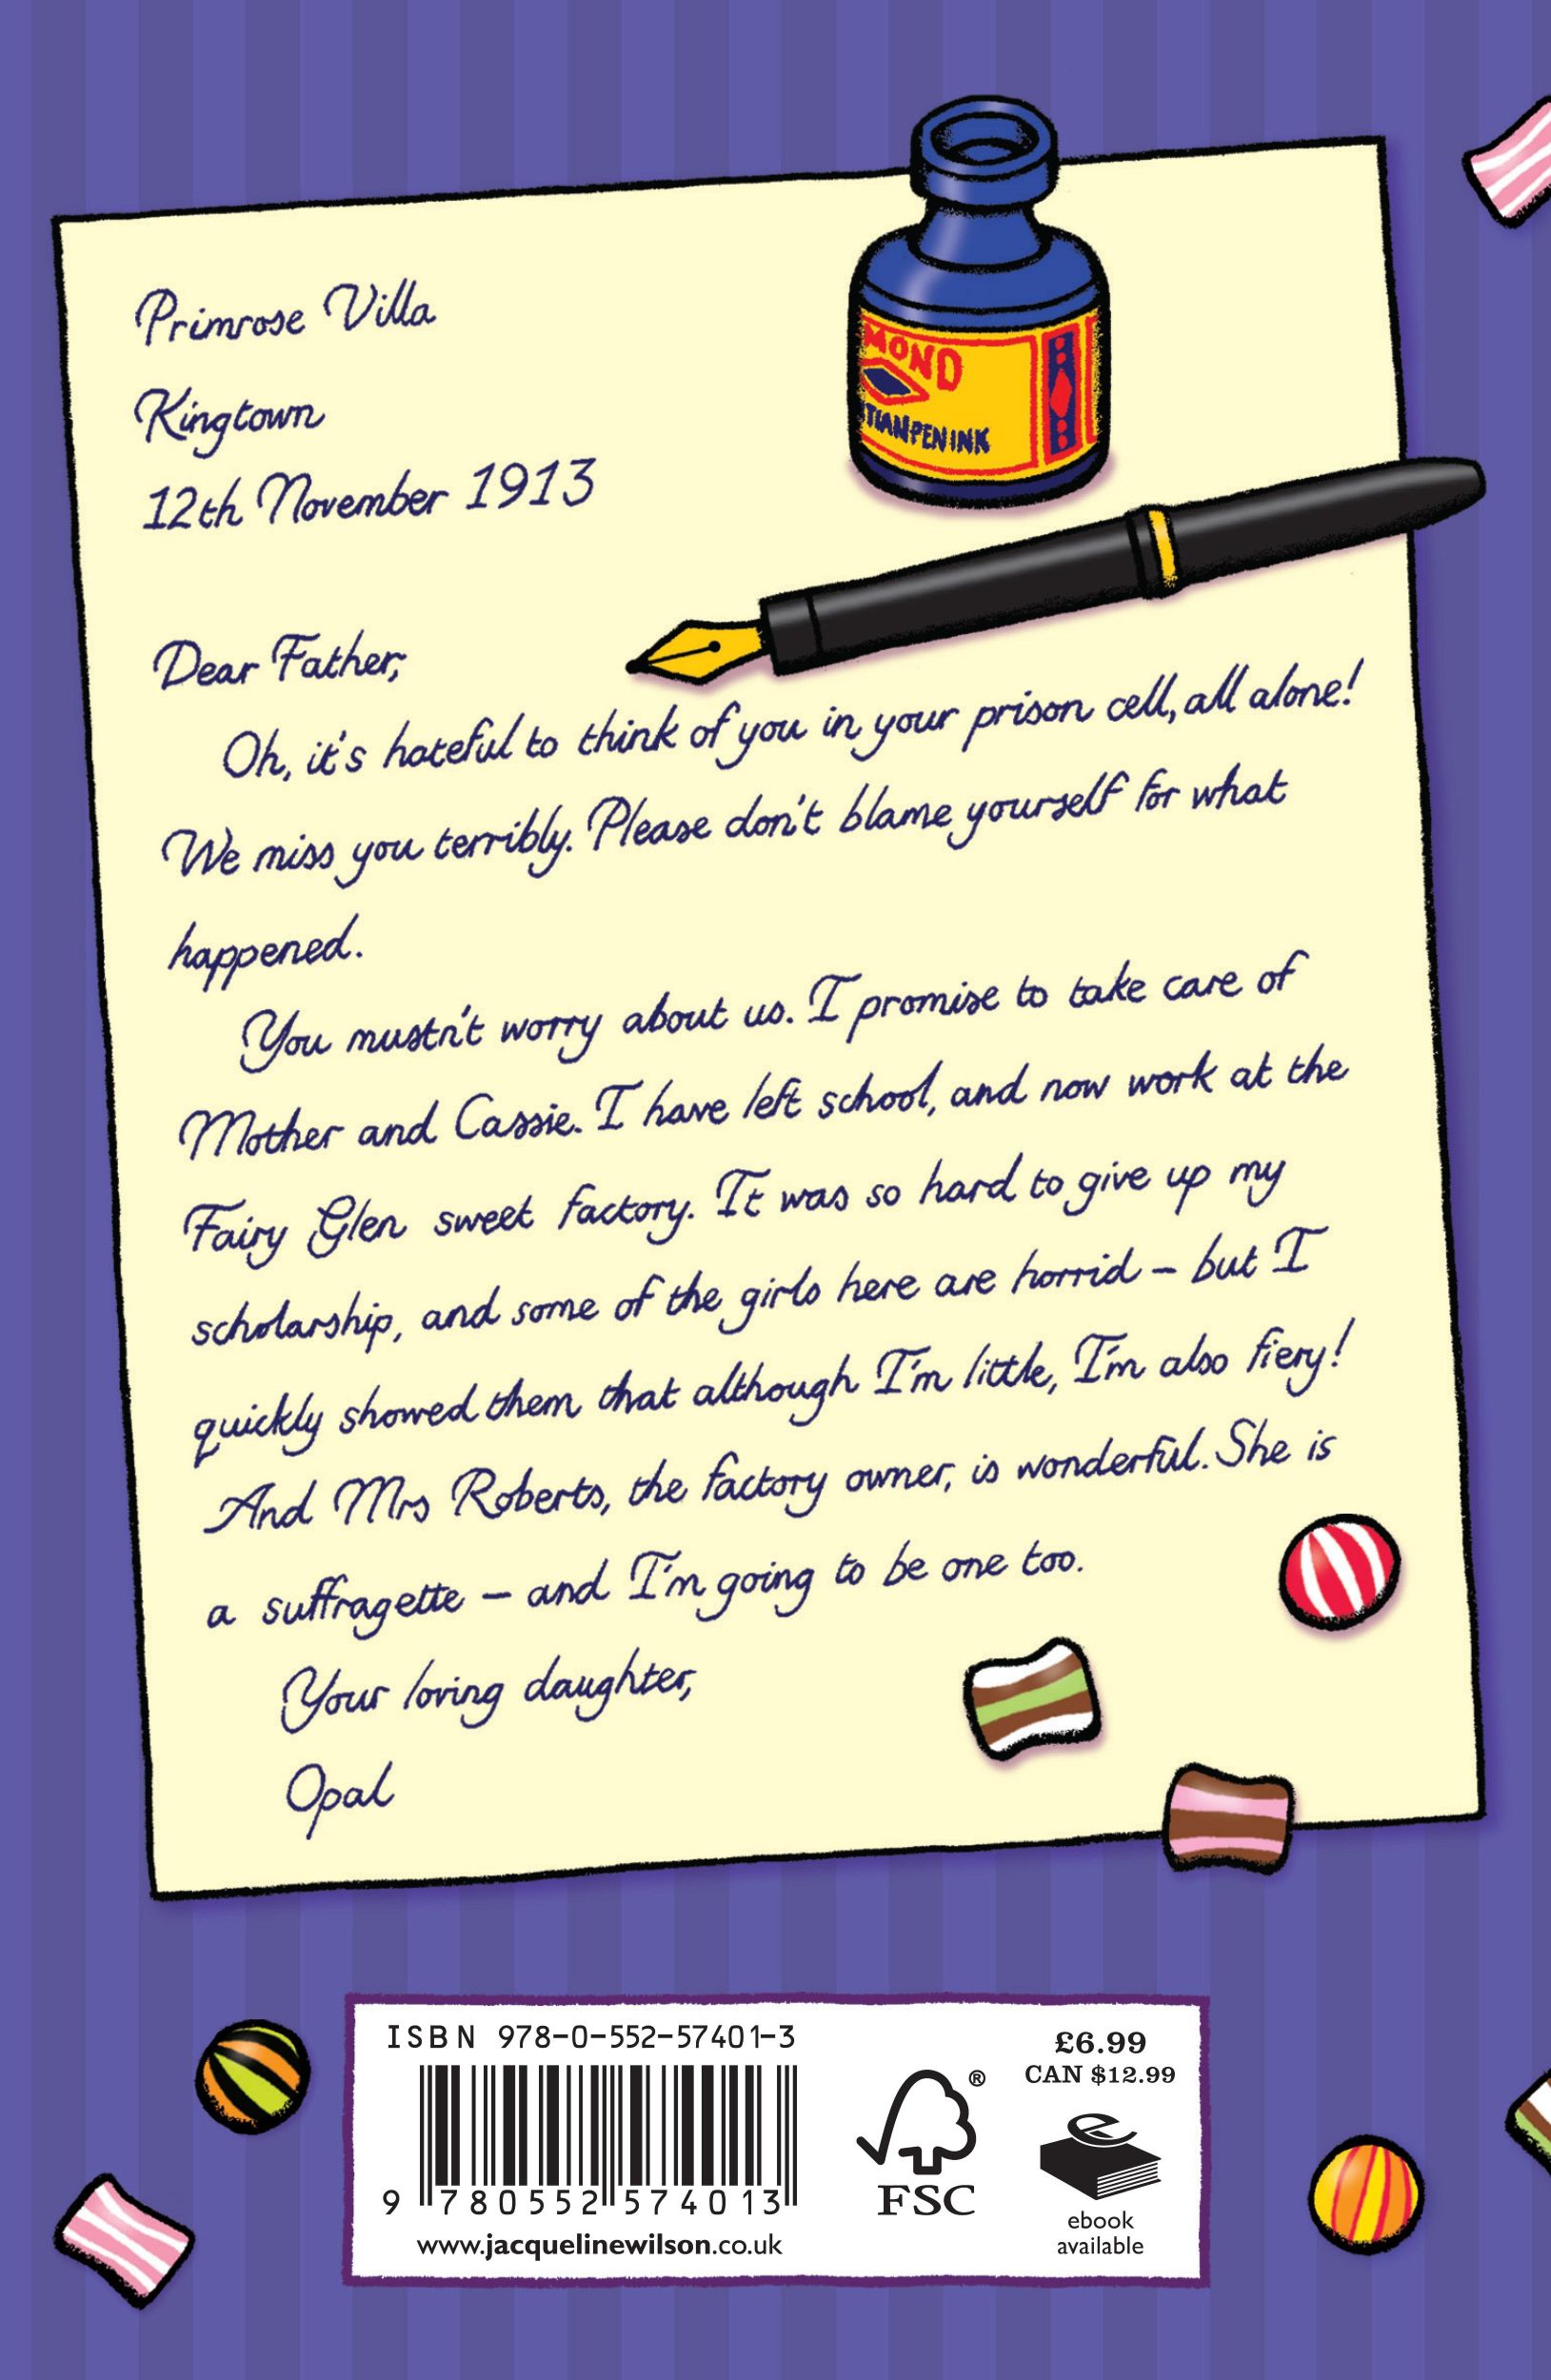 MOND
TIANPENINK
Primrose Villa
Kingtown
12th November 1913
Dear Father,
Oh, it's hateful to think of you in your prison cell, all alone!
We miss you terribly. Please don't blame yourself for what
happened.
You mustn't worry about us. I promise to take care of
Mother and Cassie. I have left school, and now work at the
Fairy Glen sweet factory. It was so hard to give up my
scholarship, and some of the girls here are horrid – but I
quickly showed them that although I'm little, I'm also fiery!
And Mrs Roberts, the factory owner, is wonderful. She is
a suffragette – and I'm going to be one too.
Your loving daughter,
Opal
ISBN 978-0-552-57401-3
9 780552 574013
www.jacquelinewilson.co.uk
®
FSC
£6.99
CAN $12.99
e
ebook
available